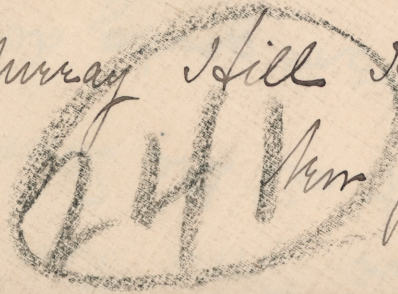 Murray Hill
241 New